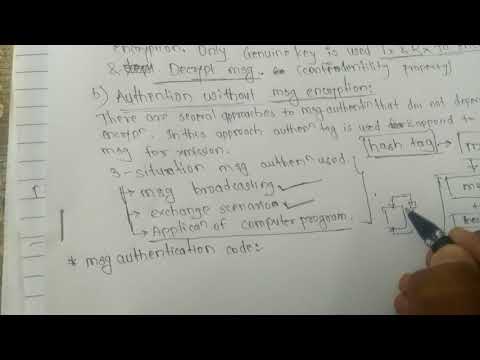 encryption. Only Genuine key is used Tx & Rx to en
& Decrypt msg. (confidentility property)
b) Authention without msg encryption:
There are several approaches to msg authentin that dom not depend
encrypn. In this approach authen tag is used append to
msg for xmission.
hash tag
3 - situation msg authen used.
→ msg broadcasting
→ exchange scenarios
→ Applican of computer program.
* msg authentication code: